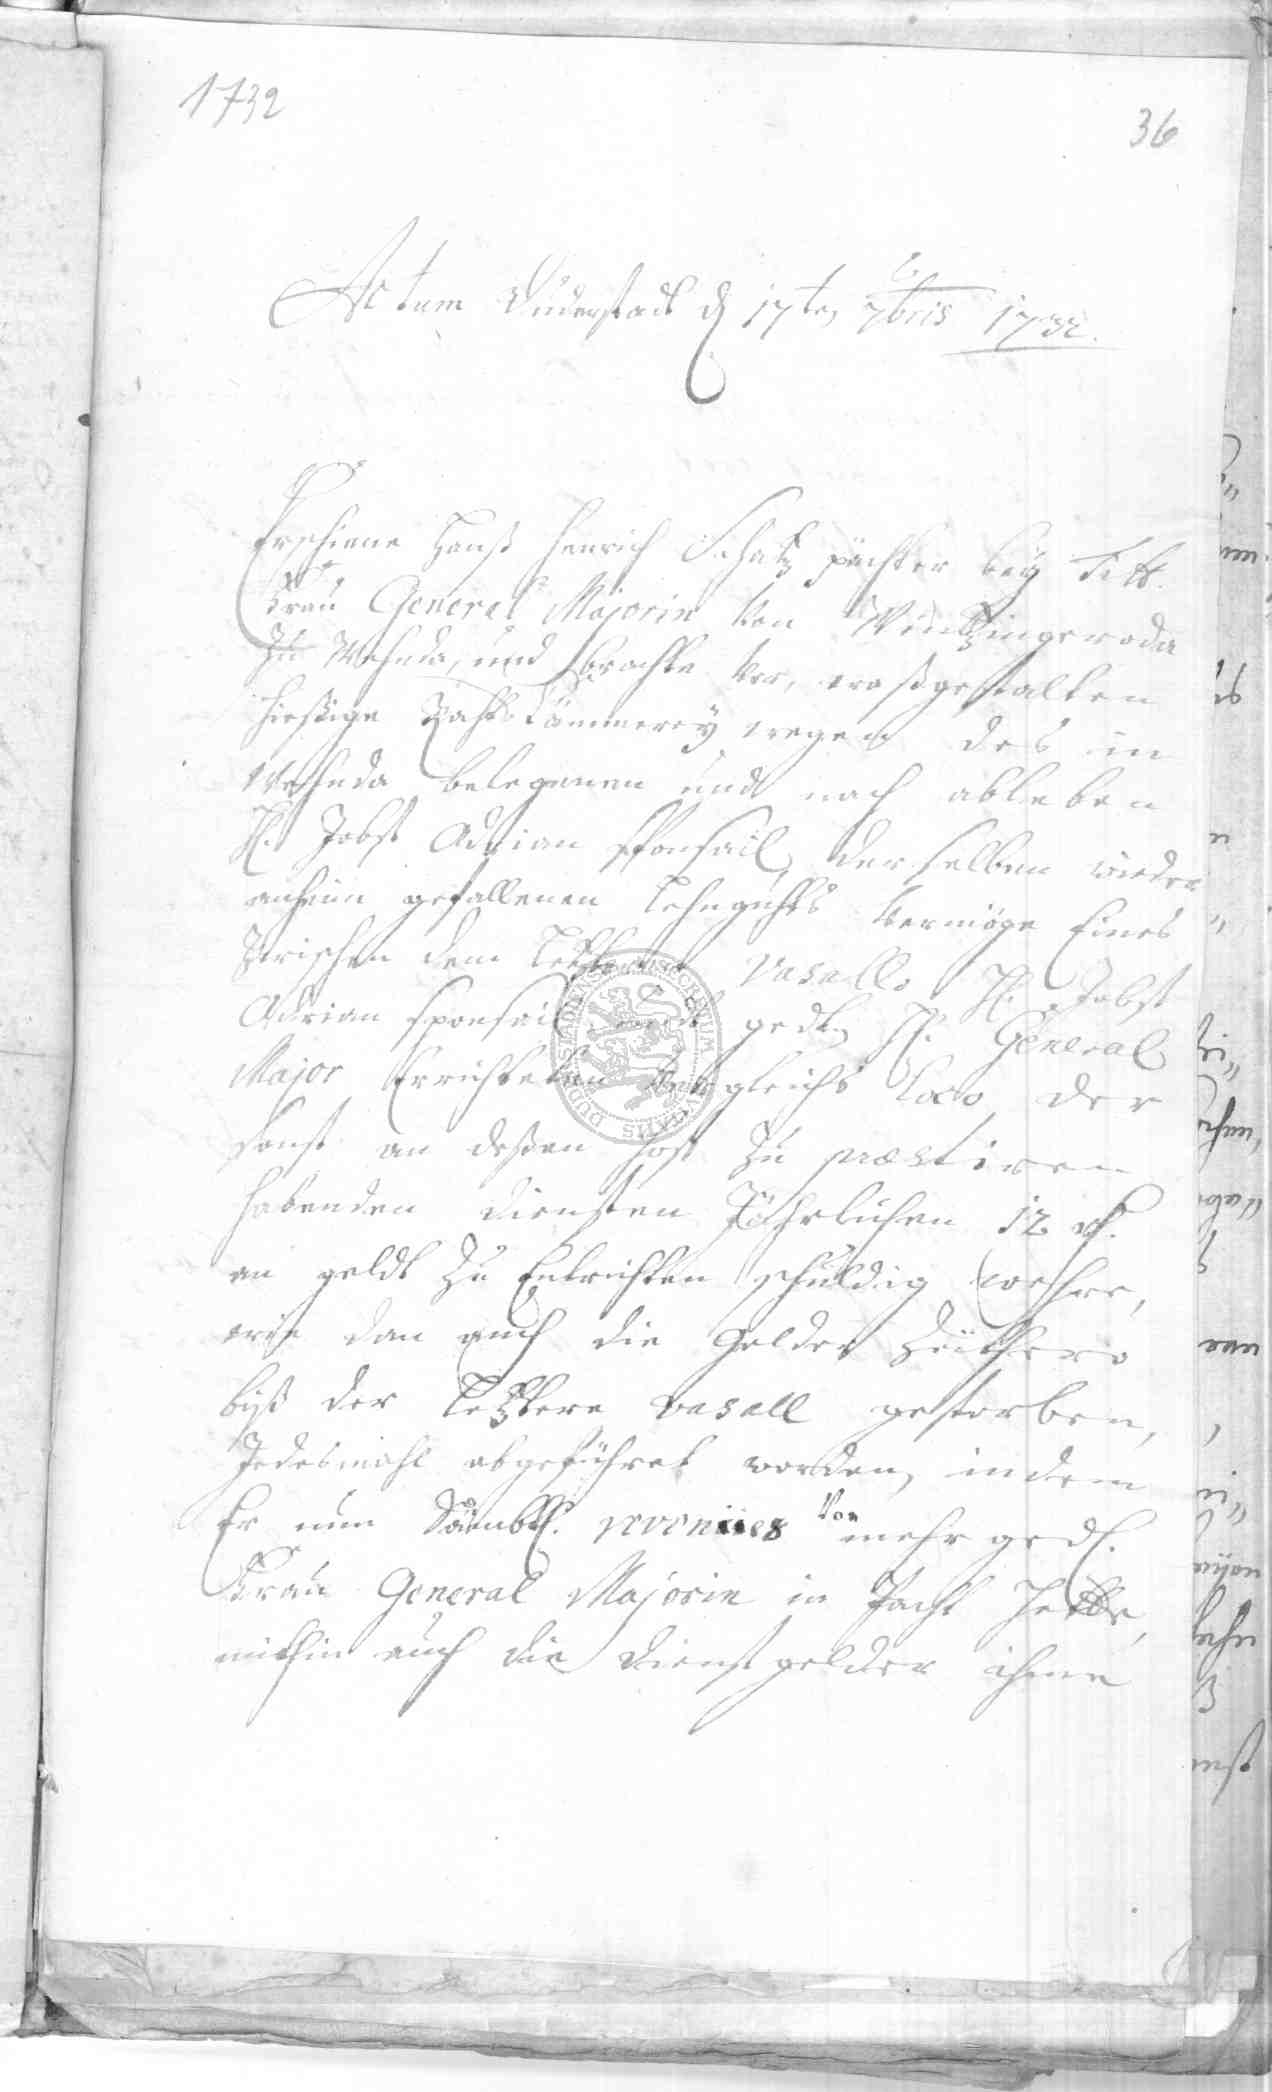 1732
36
Actum Duderstadt d 17ten 7bris 1732.
Erschiene Hanß Henrich Schatz pächter beÿ Titt.
Frau General Majorin von Wintzingeroda
Zu Wehnda, und brachte vor, waßgestalten
hiesige Rahts Cämmereÿ wegen des in
Wehnda belegenen und nach ableben
H. Jobst Adrian Sponsail, derselben wieder
anheim gefallenen Lehnguhts vermöge Eines
Zwischen dem Letzteren Vasallo H. Jobst
Adrian Sponsail und gedn. H. General
Major Errichteten Vergleichs loco der
sonst an deßen Hoff Zu præstiren
habenden Diensten Jährlichen 12 rth.
an geldt Zu Entrichten schuldig wehre,
wie dan auch die Gelder Zeithero
biß der Letztere vasall gestorben,
Jedesmahl abgeführet worden, indem
Er nun Sämbtl. revenües von mehr gedl.
Frau General Majorin in Pacht hette,
mithin auch die Dienstgelder ihme